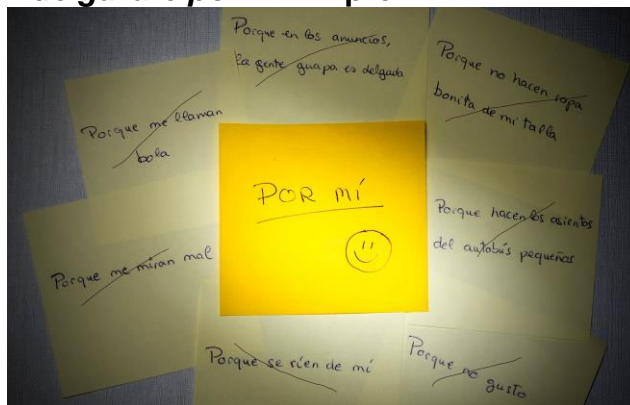 Porque en los anuncios,
la gente guapa es delgada
Porque no hacen ropa
bonita de mi talla
Porque me llaman
bola
POR MÍ
Porque hacen los asientos
del autobús pequeños
Porque me miran mal
Porque se ríen de mí
Porque no gusto